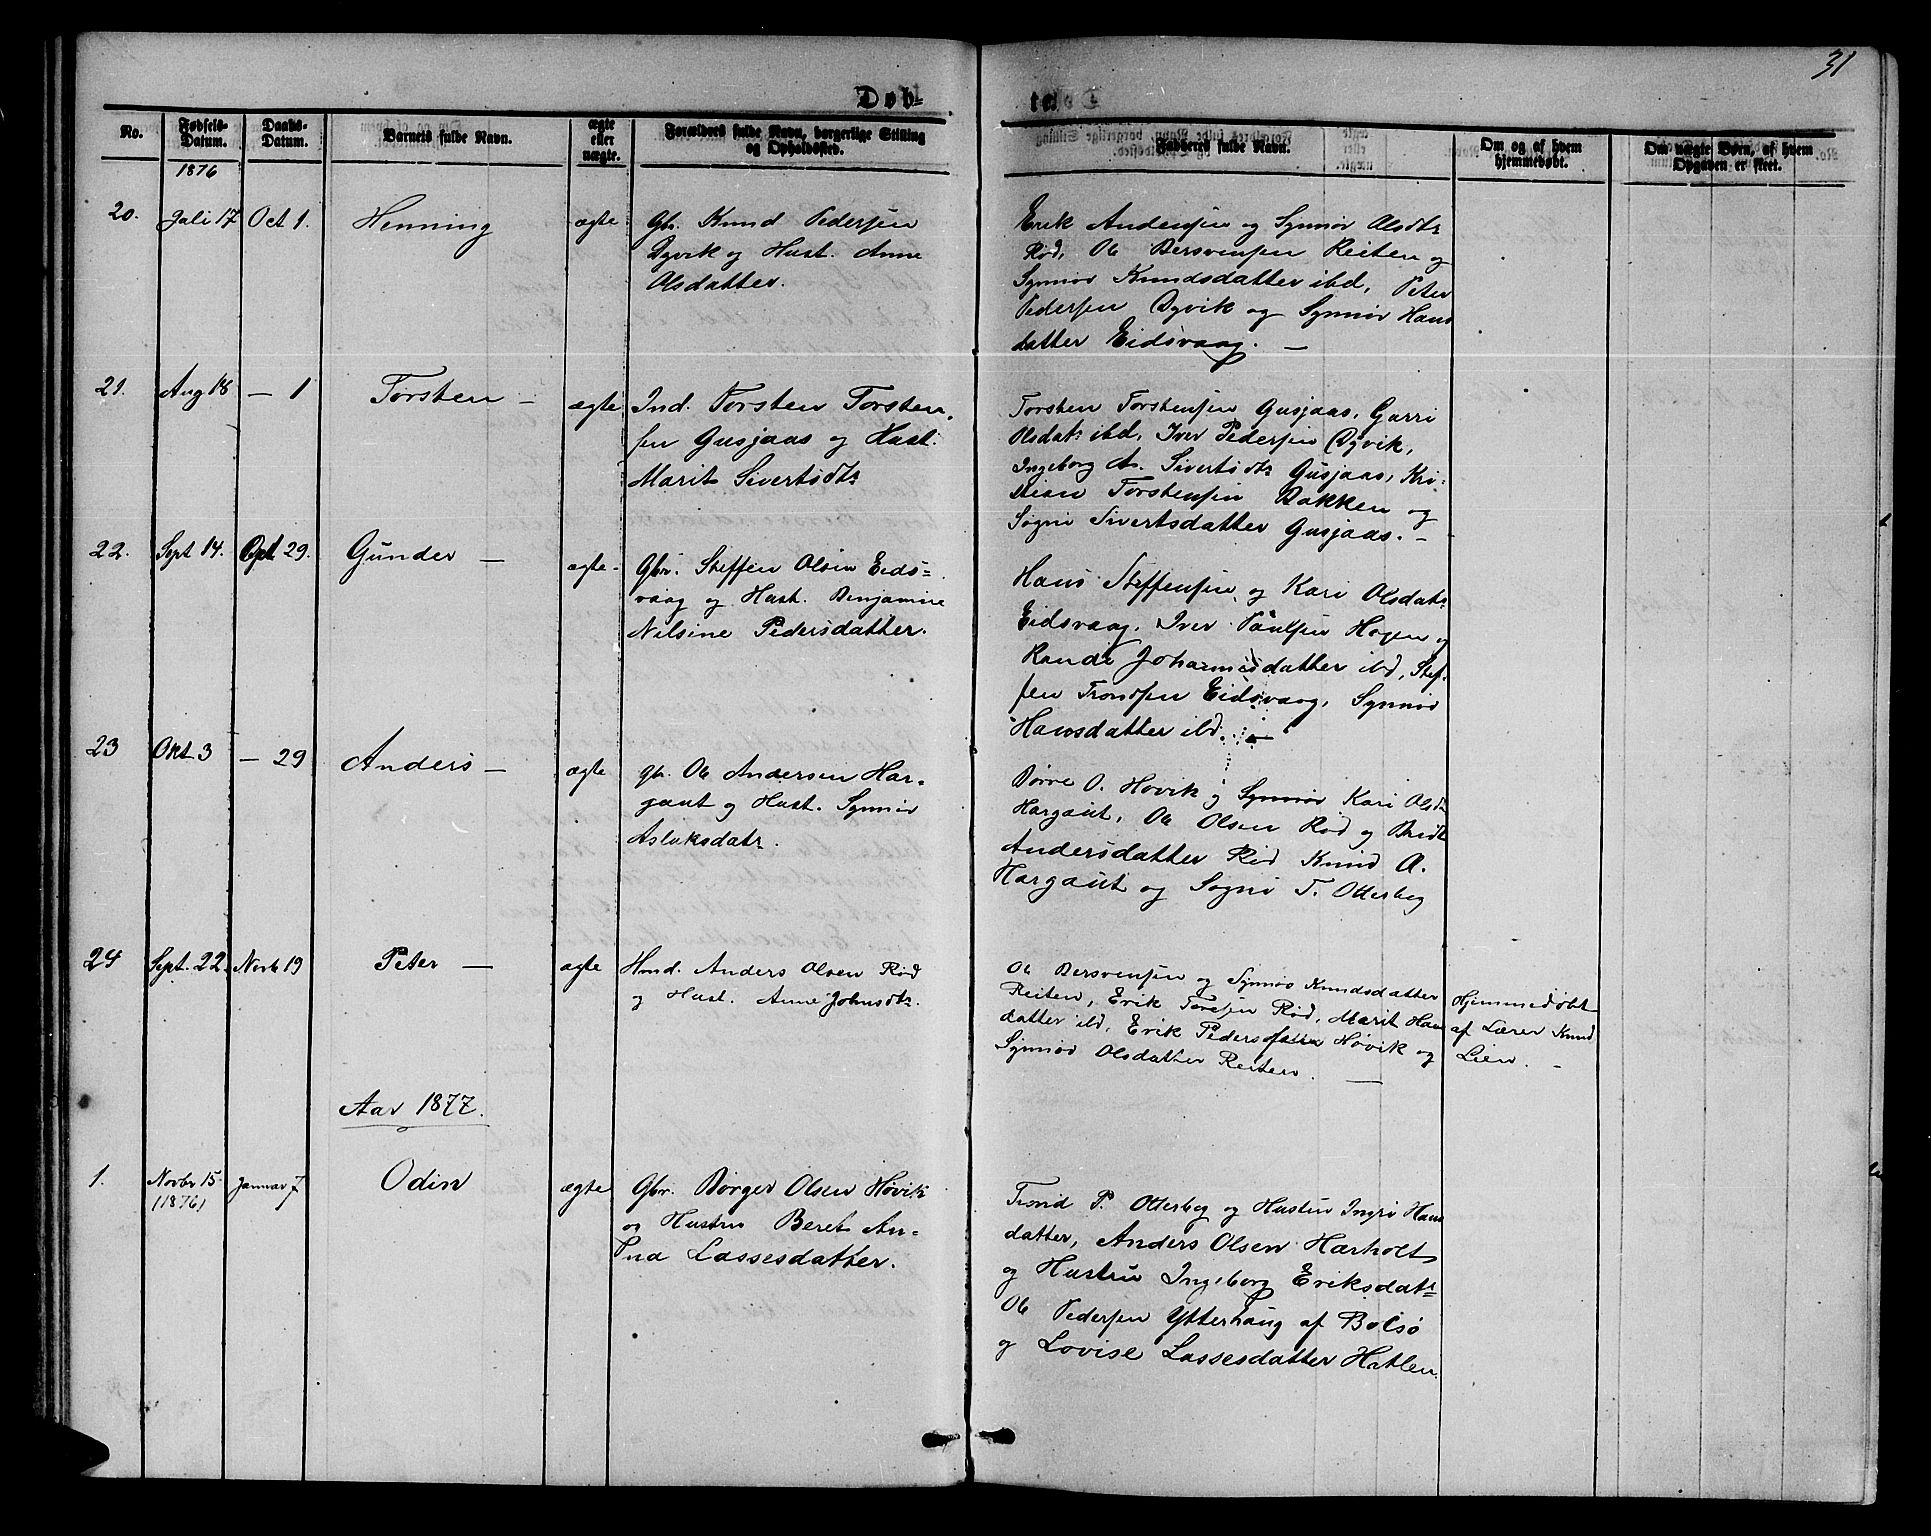 31
Døb-
No.
Fødsels-
Datum.
Daabs-
Datum.
Barnets fulde Navn.
ægte
eller
uægte.
Forældres fulde Navn, borgerlige Stilling
og Opholdssted.
Fadderes fulde Navn.
Om og af hvem
hjemmedøbt.
Om uægte Børn, af hvem
Opgaven er skeet.
1876
20.
Juli 17
Oct 1.
Henning
ægte
Gbr. Knud Pedersen
Dyvik og Hust. Anne
Olsdatter.
Erik Andersen og Synnøv Olsdtr
Rød, Ole Bersvensen Reiten og
Synnøv Knudsdatter ibd, Peter
Pedersen Dyvik og Synnøv Hans
datter Eidsvaag. —
21.
Aug 18
— 1
Torsten —
ægte
Ind. Torsten Torsten
sen Gusjaas og Hust.
Marit Sivertsdtr
Torsten Torstensen Gusjaas, Gurri
Olsdatr ibd, Iver Pedersen Dyvik,
Ingeborg A. Sivertsdtr Gusjaas, Kri-
stian Torstensen Bakken og
Søgni Sivertsdatter Gusjaas. —
22.
Sept 14.
Oct 29.
Gunder —
ægte-
Gbr. Steffen Olsen Eids-
vaag og Hust. Benjamine
Nilsine Pedersdatter.
Hans Steffensen og Kari Olsdatr
Eidsvaag, Iver Paulsen Hagen og
Randi Johannesdatter ibd, Stef-
fen Trondsen Eidsvaag, Synnøv
Hansdatter ibd. —
23
Okt 3
— 29
Anders —
ægte
gbr. Ole Andersen Har-
gaut og Hust. Synnøv
Aslaksdatr.
Børre O. Hovik og Synnøv Kari Olsdtr
Hargaut, Ole Olsen Rød og Berit
Andersdatter Rød Knud A.
Hargaut og Søgni T. Otterbeg
24
Sept. 22.
Novb 19
Peter —
ægte
Hmd. Anders Olsen Rød
og Hust. Anne Johnsdtr.
Ole Bersvensen og Synnøv Knudsdatter
Reiten, Erik Toresen Rød, Marit Hans
datter ibd, Erik Pedersen Høvik og
Synnøv Olsdatter Reiten. —
Hjemmedøbt
af Lærer Knud
Lien. —
Aar 1877.
1.
Novbr 15.
(1876)
Januar 7
Odin
ægte
Gbr. Børger Olsen Høvik
og Hustru Beret An-
na Lassesdatter.
Trond P. Otterbeg og Hustru Ingri Hans
datter, Anders Olsen Hærholt
og Hustru Ingeborg Eriksdatr
Ole Pedersen Ytterhaug af Bolsø
og Lovise Lassesdatter Hatlen.